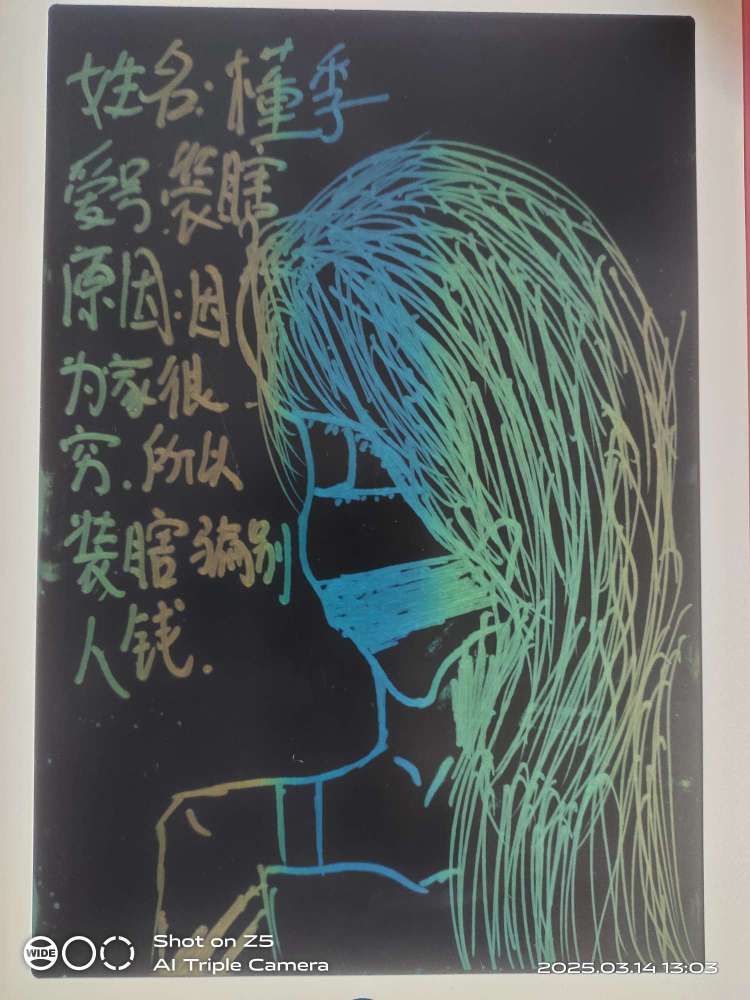 姓名:槿季
爱号装瞎
原因:因
为家很
穷.所以
装瞎骗别
人钱.
WIDE
Shot on Z5
AI Triple Camera
2025.03.14 13:03